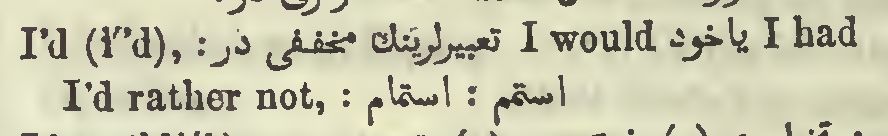 I'd (ī″d), : تعبیرلرینك مخففی در I would یاخود I had
I'd rather not, : استمم : استمام